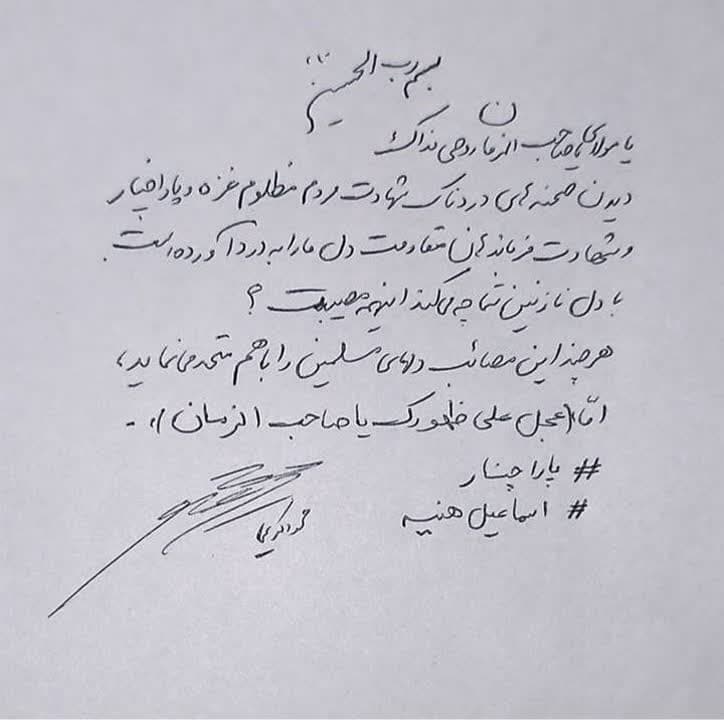 بسم رب الحسین
یا مولای یا صاحب الزمان روحی فداک
دیدن صحنه های دردناک شهادت مردم مظلوم غزه و پاراچنار
و شهادت فرماندهان مقاومت دل ما را به درد آورده است.
با دل نازنین شما چه می کند اینهمه مصیبت؟
هر چند این مصائب دلهای مسلمین را با هم متحد می نماید،
امّا، (عجل علی ظهورک یا صاحب الزمان)
# پاراچنار
# اسماعیل هنیه
محمود کریمی